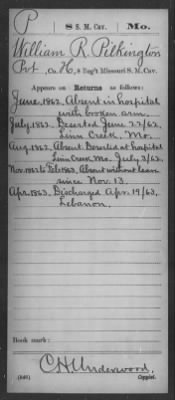 P | 8 S. M. Cav. | Mo.
William R. Pilkington
Pvt, Co. H, 8 Reg't Missouri S. M. Cav.
Appears on Returns as follows:
June, 1862, Absent in hospital
with broken arm.
July, 1862. Deserted June 22/62,
Linn Creek, Mo.
Aug. 1862, Absent. Deserted at hospital
Linn Creek, Mo. July 3/62.
Nov. 1862 to Feb 1863, Absent without leave
since Nov. 13.
Apr. 1863, Discharged Apr. 19/63,
Lebanon,
Book mark:
C H Underwood,
Copyist.